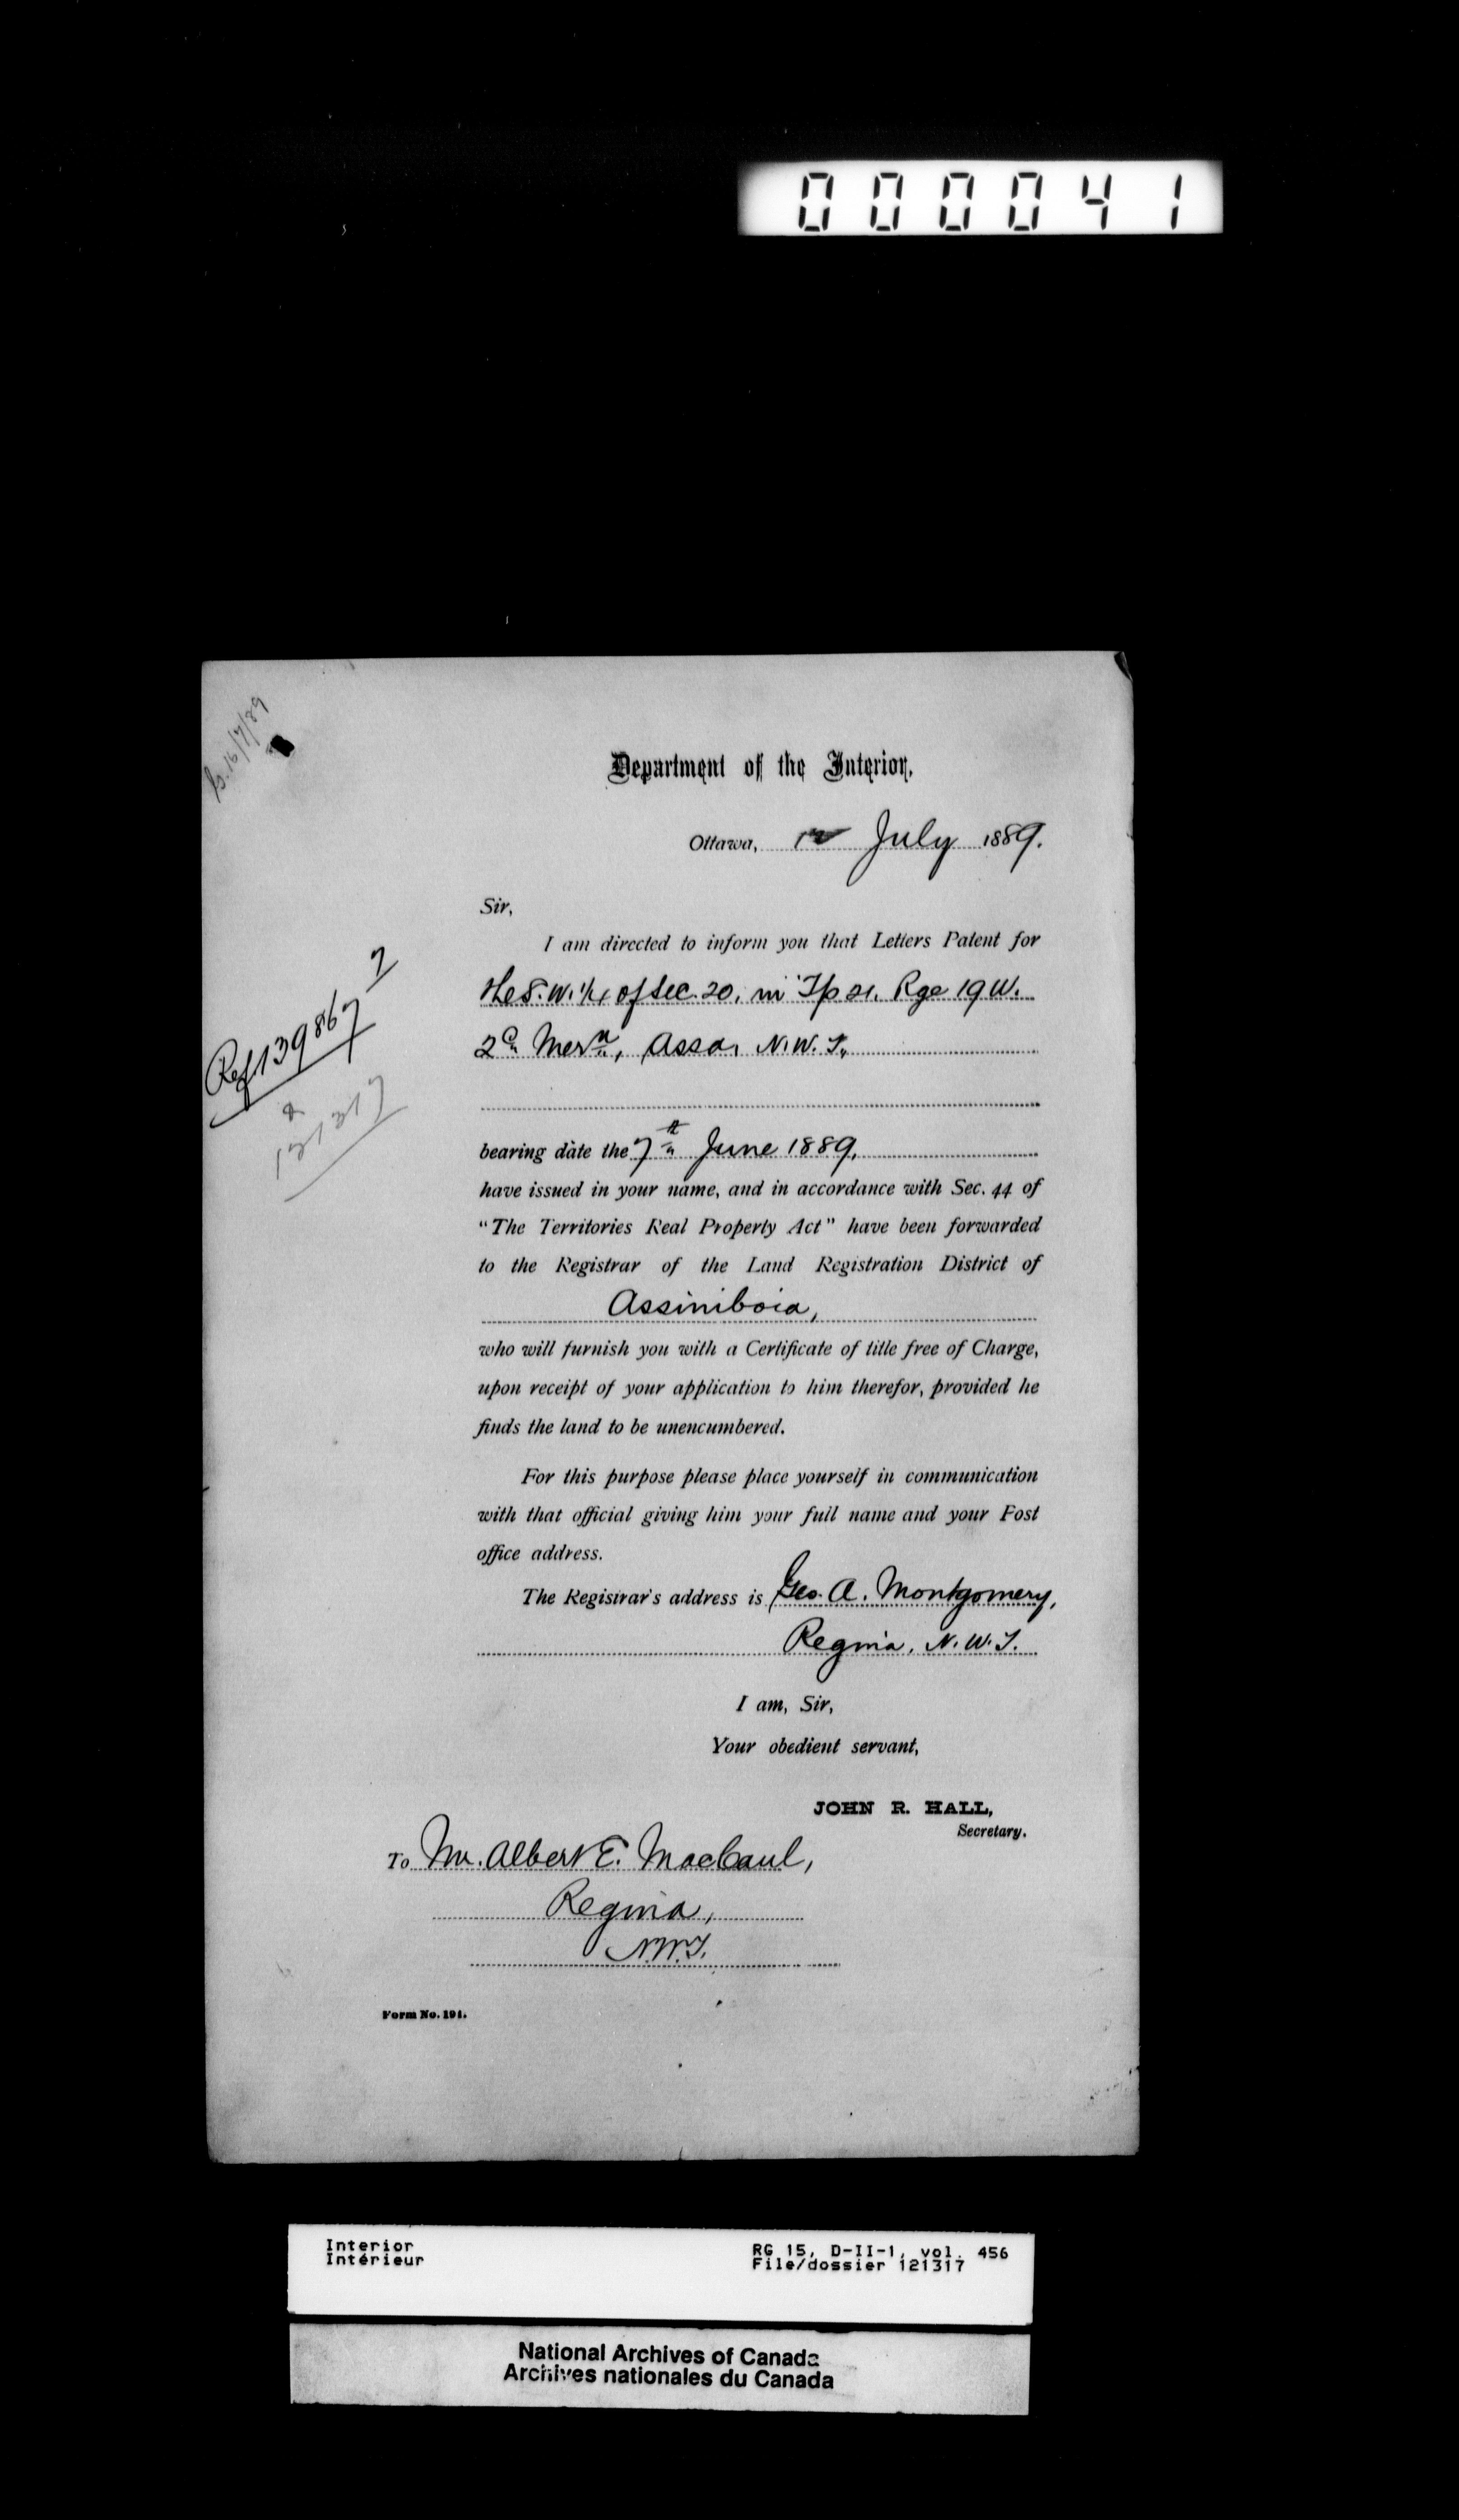 000041
B. 16/7/89
Department of the Interior,
Ottawa, 12 July 1889.
Sir,
I am directed to inform you that Letters Patent for
the S.W. 1/4 of Sec. 20, in Tp 21. Rge 19 W.
2d Mern, Assa, N.W.T.,
Ref 139867
&
121317
bearing date the 7th June 1889,
have issued in your name, and in accordance with Sec. 44 of
"The Territories Real Property Act" have been forwarded
to the Registrar of the Land Registration District of
Assiniboia,
who will furnish you with a Certificate of title free of Charge,
upon receipt of your application to him therefor, provided he
finds the land to be unencumbered.
For this purpose please place yourself in communication
with that official giving him your full name and your Post
office address.
The Registrar's address is Geo. A. Montgomery,
Regina, N.W.T.
I am, Sir,
Your obedient servant,
JOHN R. HALL,
Secretary.
To Mr. Albert E. MacCaul,
Regina,
N.W.T.
Form No. 191.
Interior
Intérieur
RG 15, D-II-1, vol. 456
File/dossier 121317
National Archives of Canada
Archives nationales du Canada